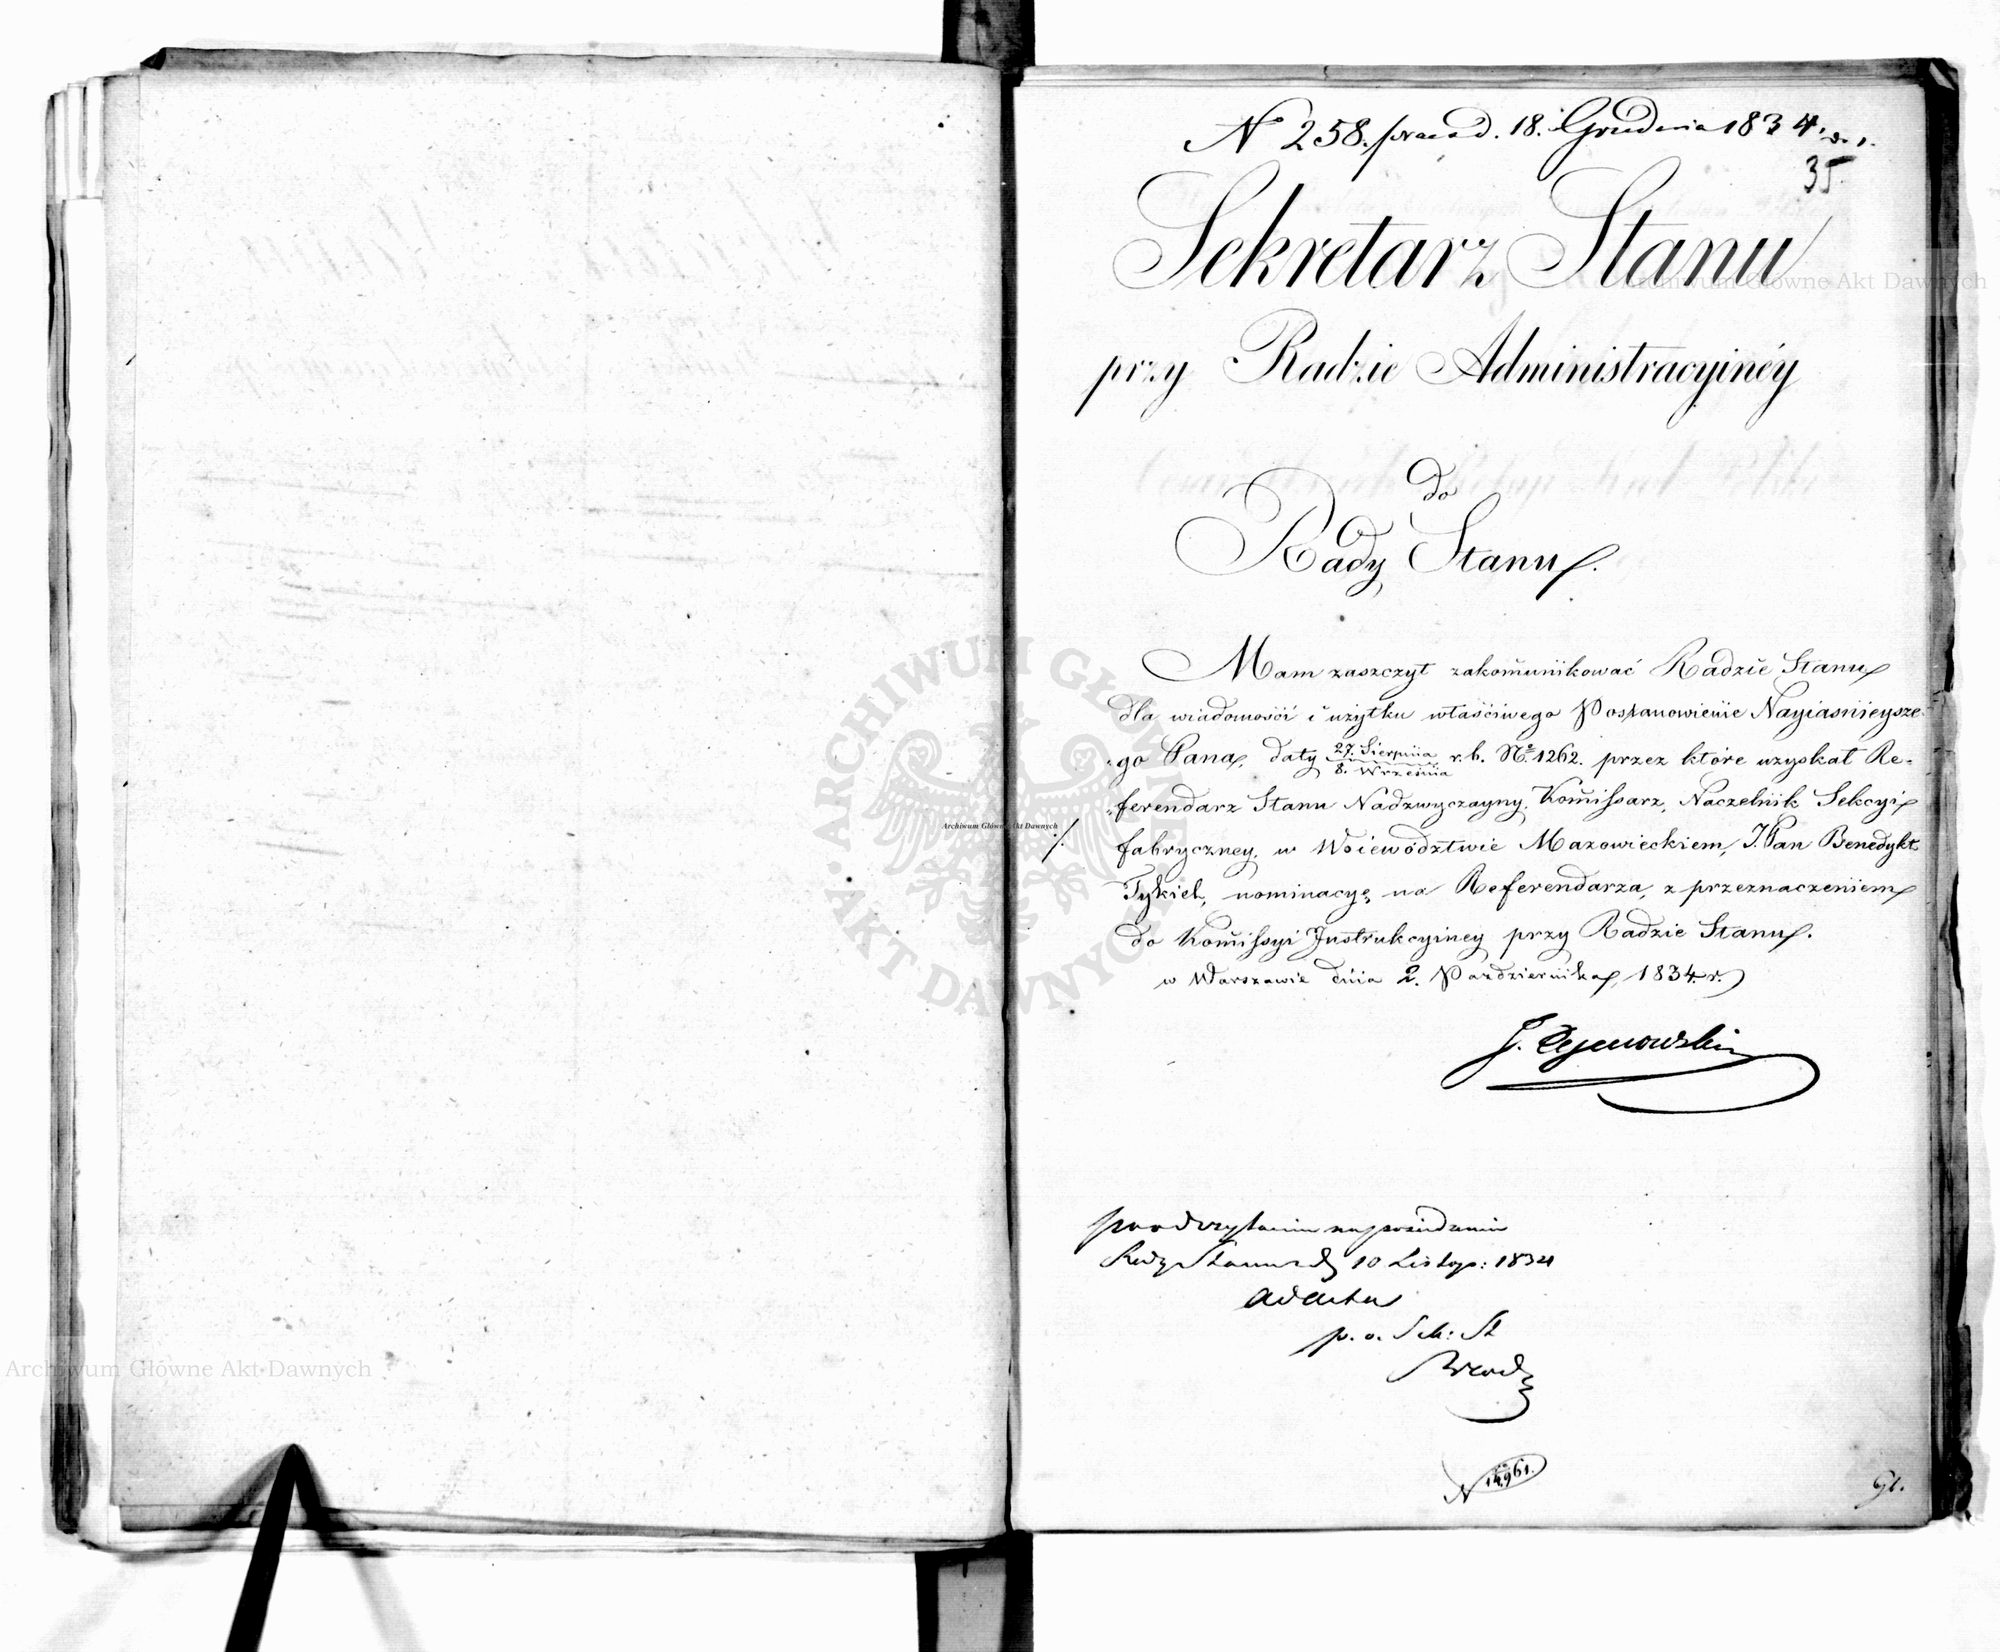 N° 258. praes d. 18. Grudnia 1834. r.
35.
Sekretarz Stanu
przy Radzie Administracyinéy
do
Rady Stanu.
Mam zaszczyt zakomunikować Radzie Stanu
dla wiadomości i użytku właściwego Postanowienie Nayiaśnieysze-
go Pana, daty 27. Sierpnia / 8. Września r. b. N° 1262. przez które uzyskał Re-
ferendarz Stanu Nadzwyczayny, Kommissarz, Naczelnik Sekcyi
fabryczney, w Województwie Mazowieckiem, J. Pan Benedykt
Tykiel, nominacyę na Referendarza, z przeznaczeniem
do Kommissyi Instrukcyiney przy Radzie Stanu.
w Warszawie dnia 2. Października, 1834. r.
J. Tymowski
po odczytaniu na posiedzeniu
Rady Stanu d. 10 Listop: 1834
ad acta
p. o. Sek: St
N 14,961.
Archiwum Główne Akt Dawnych
ARCHIWUM GŁÓWNE · AKT DAWNYCH ·
Archiwum Główne Akt Dawnych
Archiwum Główne Akt Dawnych